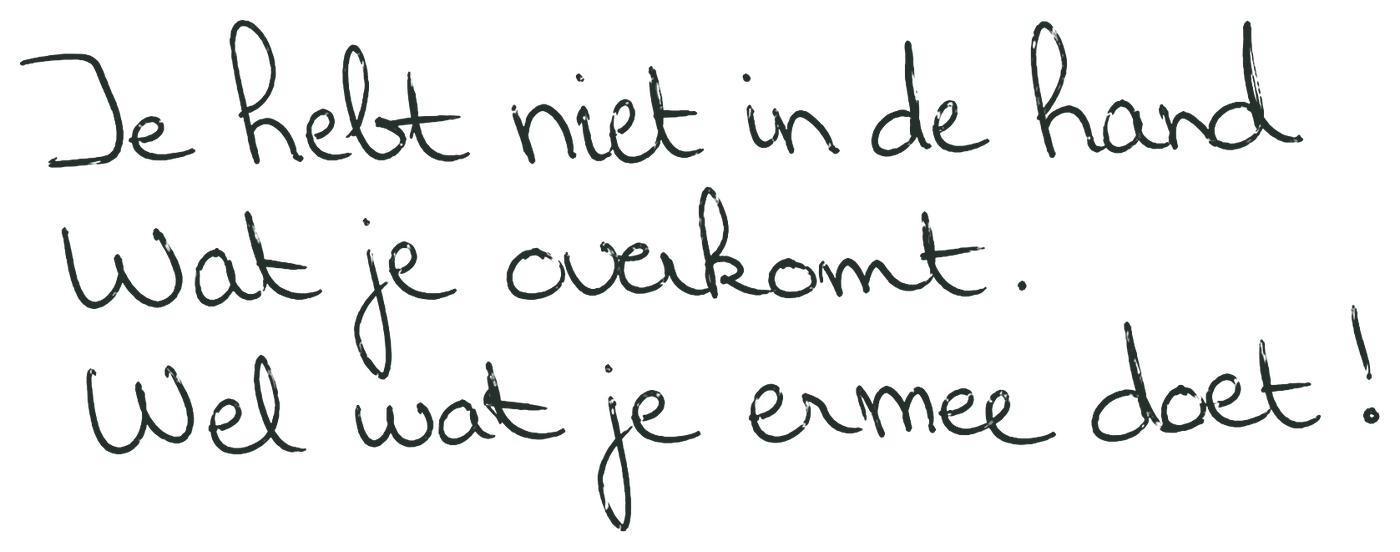 Je hebt niet in de hand
Wat je overkomt.
Wel wat je ermee doet!